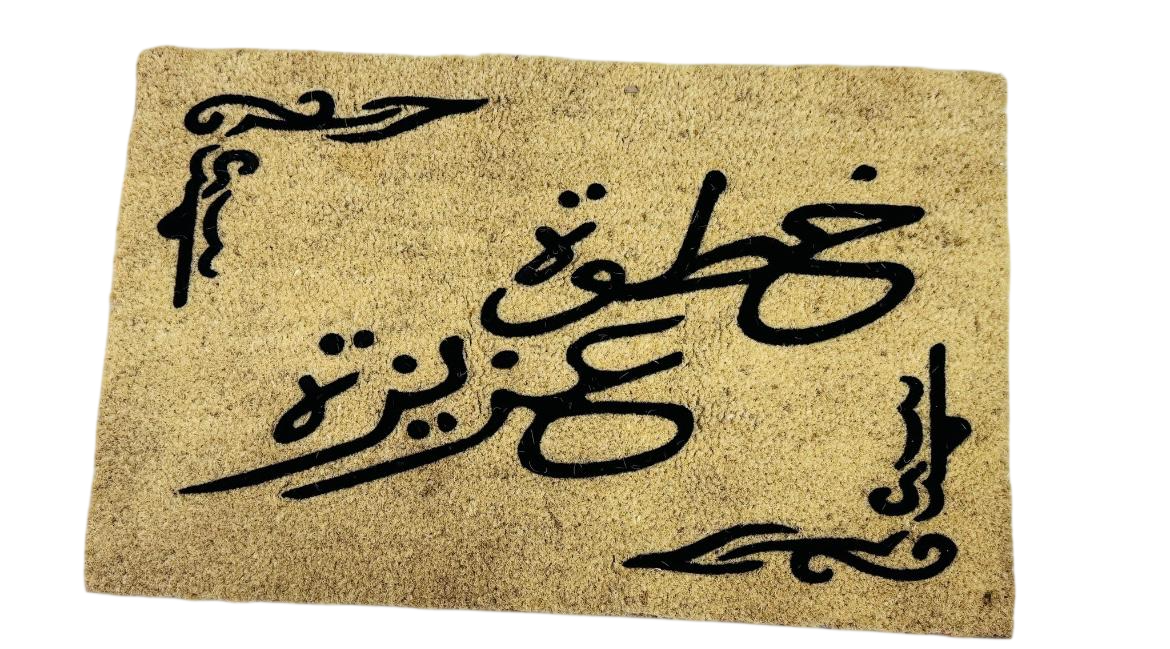 خطوة
عزيزة